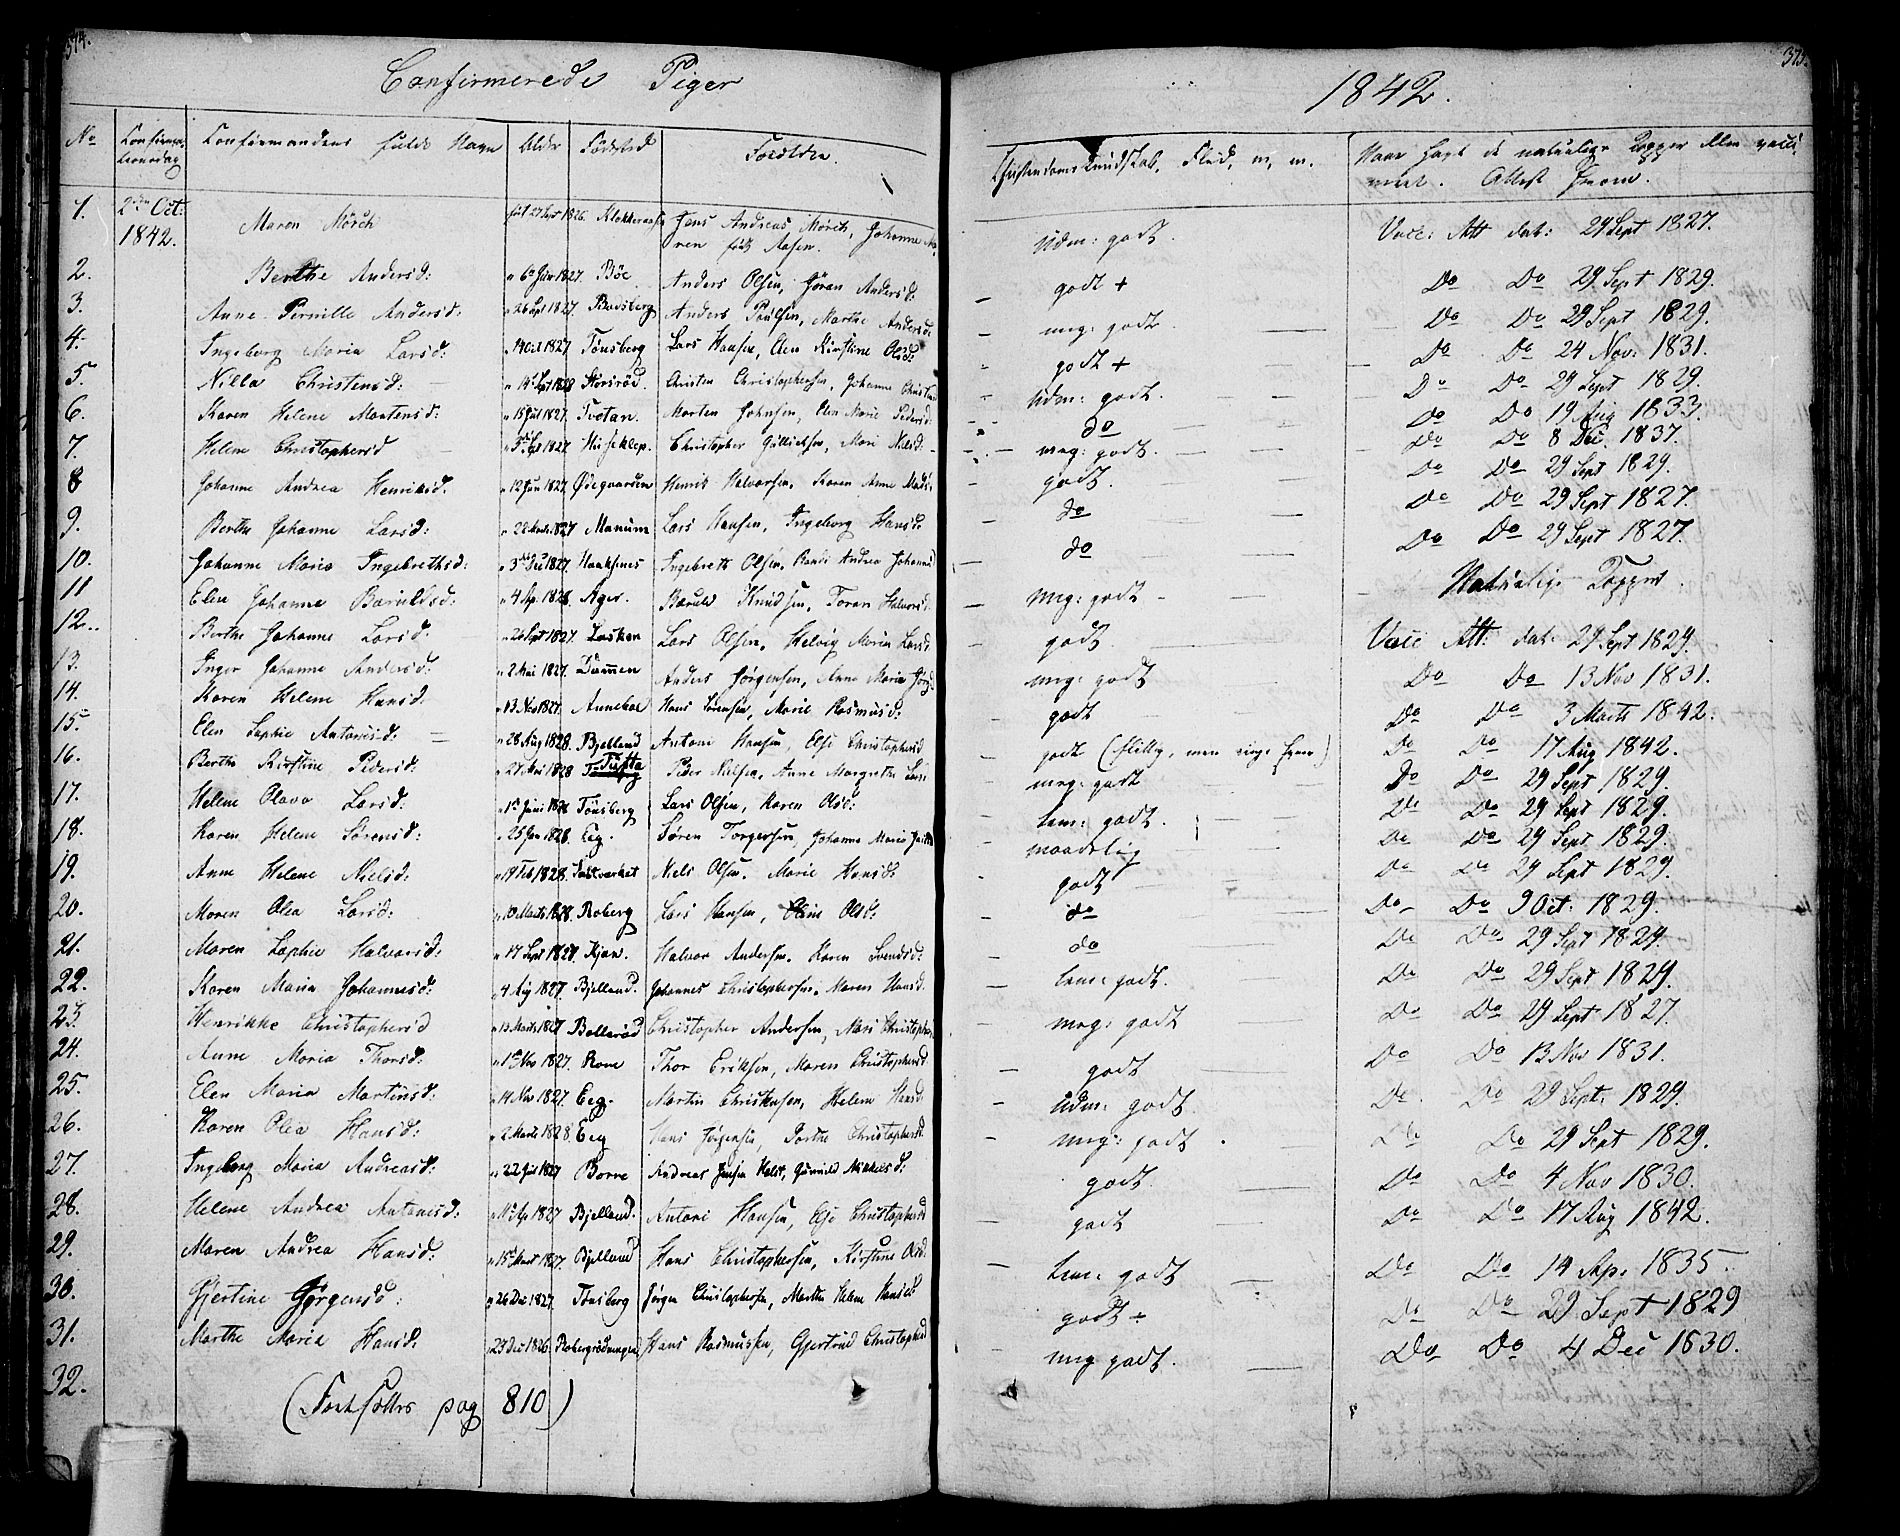 374.
Confirmerede Piger
1842.
375.
No
Confirmandens fulde Navn
Alder
Fødested
Forældre.
Christendoms Kundskab, Flid, m, m.
Naar havt de naturlige Kopper eller vacci
neret. Attest hvorom.
1. 2den Oct: 1842. Maren Mörch 1826. Hans Andreas Mörch, Johanne Ma
ren född Aasen. Udm: godt. Vacc: Att dat: 29 Sept 1827.
2. Berthe Andersd: 1827. Böe Anders Olsen, Göran Andersd: godt + Do Do 29 Sept 1829.
3. Anne Pernille Andersd: 26 Spt 1827. Anders Poulsen, Marthe Andersd: meg: godt Do Do 29 Sept 1829.
4. Ingeborg Maria Larsd: 1827 Tönsberg Lars Hansen, Elen Kirstine Olsd: godt + Do Do 24 Nov: 1831.
5. Nilla Christensd: Christen Christophersen, Johanne Udm: godt. Do Do 29 Sept 1829.
6. Karen Helene Mortensd: 15 Jul 1827. Tvetan. Morten Johnsen, Elen Marie Pedersd: do Do Do 19 Aug 1833.
7. Helene Christophersd 1827 Christopher Mari Nilsd: meg: godt. Do Do 8 Dec. 1837.
8 Johanne Andrea Henriksd: 12 Jan 1827. Ødegaarden Henrik Halvorsen, Karen Anne godt. Do Do 29 Sept 1829.
9. Berthe Johanne Larsd: 1827 Manum Lars Hansen, Ingeborg Hansd: do Do Do 29 Sept 1827.
10. Johanne Maria Ingebrethsd: 1827. Ingebreth Olsen, Randi Andrea do Do Do 29 Sept 1827.
11 Elen Johanne 4 Ap. 1828. Ager. Knudsen, Toran Halvorsd: meg: godt Naturlige Kopper.
12. Berthe Johanne Larsd: 26 Sept 1827. Lasken Lars Olsen, Helvig Maria Larsd godt. Vacc Att: dat: 29 Sept 1829.
13. Inger Johanne Andersd: 2 Mai 1827. Anders Jörgensen, Anne Maria meg: godt Do Do 13 Nov 1831.
14. Karen Helene Hansd: 13 Nov 1827. Anneboe Hans Sörensen, Marie Rasmusd: godt Do Do 3 Marts 1842.
15 Elen Sophie Antonisd: 28 Aug 1828. Bjelland Antoni Hansen, Else Christophersd godt Do Do 17 Aug 1842.
16. Berthe Kirstine Pedersd: 1828 Peder Nielsen, Anne Margrethe meg: godt Do Do 29 Sept 1829.
17. Helene Olava Larsd: Tönsberg Lars Olsen, Karen Olsd: tem: godt. Do Do 29 Sept 1829.
18. Karen Helene Sörensd: 25 Jan 1828. Eeg. Sören Torgersen, Johanne Maria maadelig Do Do 29 Sept 1829.
19. Anne Helene Nielsd: 19 Feb 1828. Niels Olsen, Marie Hansd: godt Do Do 29 Sept 1829.
20. Maren Olea Larsd: 10 Marts 1828. Roberg Lars Hansen, Olsd: do Do Do 9 Oct: 1829.
21. Maren Sophie Halvorsd: 17 Sept Halvor Andersen, Karen Svendsd: do Do Do 29 Sept 1829.
22. Karen Maria Johannesd: 4 Aug 1827. Bjelland. Johannes Christophersen, Maren Hansd: tem: godt. Do Do 29 Sept 1829.
23. Henrikke Christophersd Marts 1827 Bollerød Christopher Andersen, Mari meg: godt Do Do 29 Sept 1827.
24. Anne Maria Thorsd: Nov 1827. Rom Thor Eriksen, Maren Christophersd godt Do Do 13 Nov 1831.
25 Elen Maria Martinsd: 14 Nov 1827. Eeg. Martin Christensen, Helene Hansd: Udm: godt. Do Do 29 Sept: 1829.
26. Karen Olea Hansd: 2 Marts 1828. Eeg Hans Jörgensen, Christophersd: meg: godt. Do Do 29 Sept 1829.
27. Ingeborg Maria Andreasd: 22 Jul 1827 Borre Andreas Jensen Holst, Gunnild godt. Do Do 4 Nov 1830.
28. Helene Andrea Antonisd: 1827 Bjelland. Antoni Hansen, Else Christophersd godt Do Do 17 Aug 1842.
29. Maren Andrea Hansd: 1827. Bjelland Hans Christophersen, Kirstine Olsd: tem: godt Do Do 14 Ap. 1835.
30. Gjertine Jörgensd: 26 Dec: 1827. Tönsberg Jörgen Christophersen, Marthe Helene Hansd: godt ÷ Do Do 29 Sept 1829
31. Marthe Maria Hansd: Dec 1826. Hans Rasmussen, Gjertrud Christophersd meg godt. Do Do 4 Dec 1830.
32.
(Fortsættes pag 810)